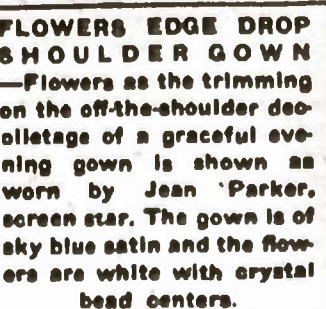 FLOWERS EDGE DROP
SHOULDER GOWN
—Flowers as the trimming
on the off-the-shoulder dec-
olletage of a graceful eve-
ning gown is shown as
worn by Jean Parker,
screen star. The gown is of
sky blue satin and the flow-
ers are white with crystal
bead centers.